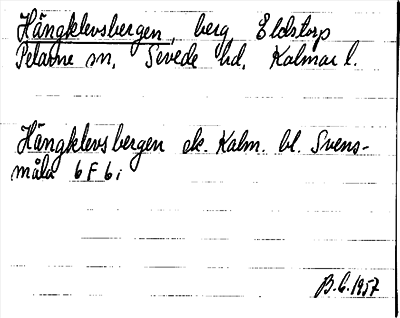 Hängklevsbergen, berg, Eldstorp
Pelarne sn, Sevede hd, Kalmar l.
Hängklevsbergen ek. Kalm. bl. Svens-
måla 6 F 6 i
B.L. 1957